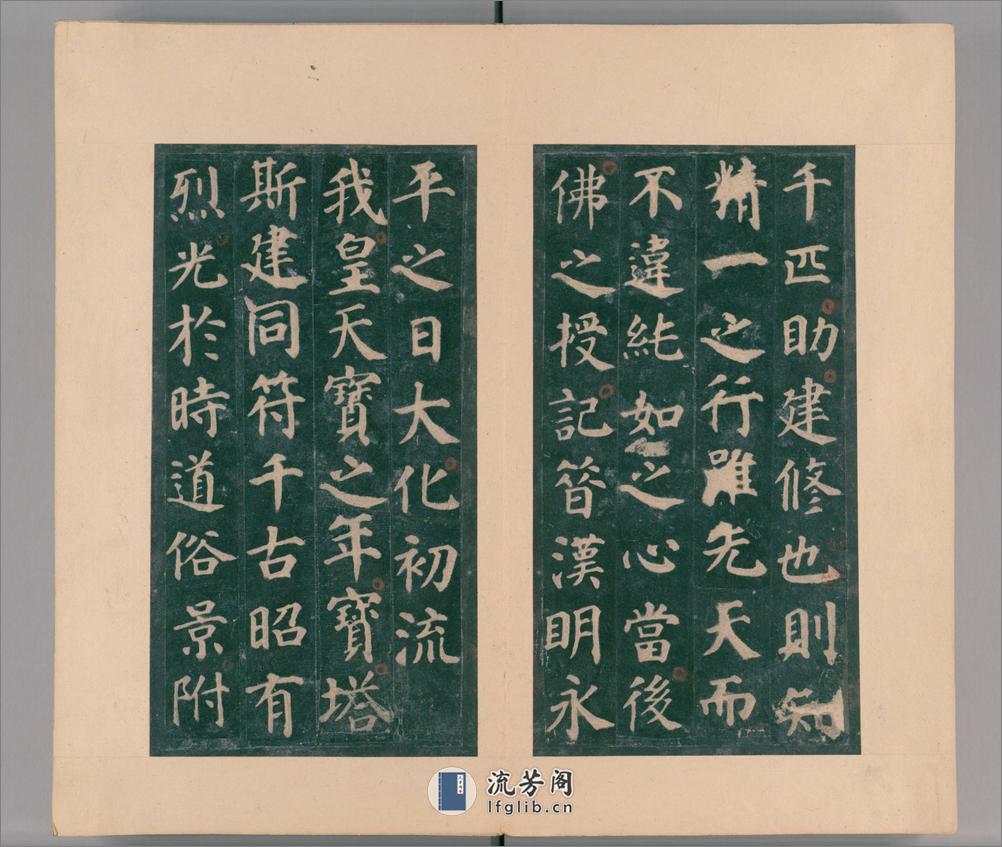 千匹助建修也則知
精一之行雖先天而
不違純如之心當後
佛之授記昔漢明永
平之日大化初流
我皇天寶之年寶塔
斯建同符千古昭有
烈光於時道俗景附
流芳阁
lfglib.cn